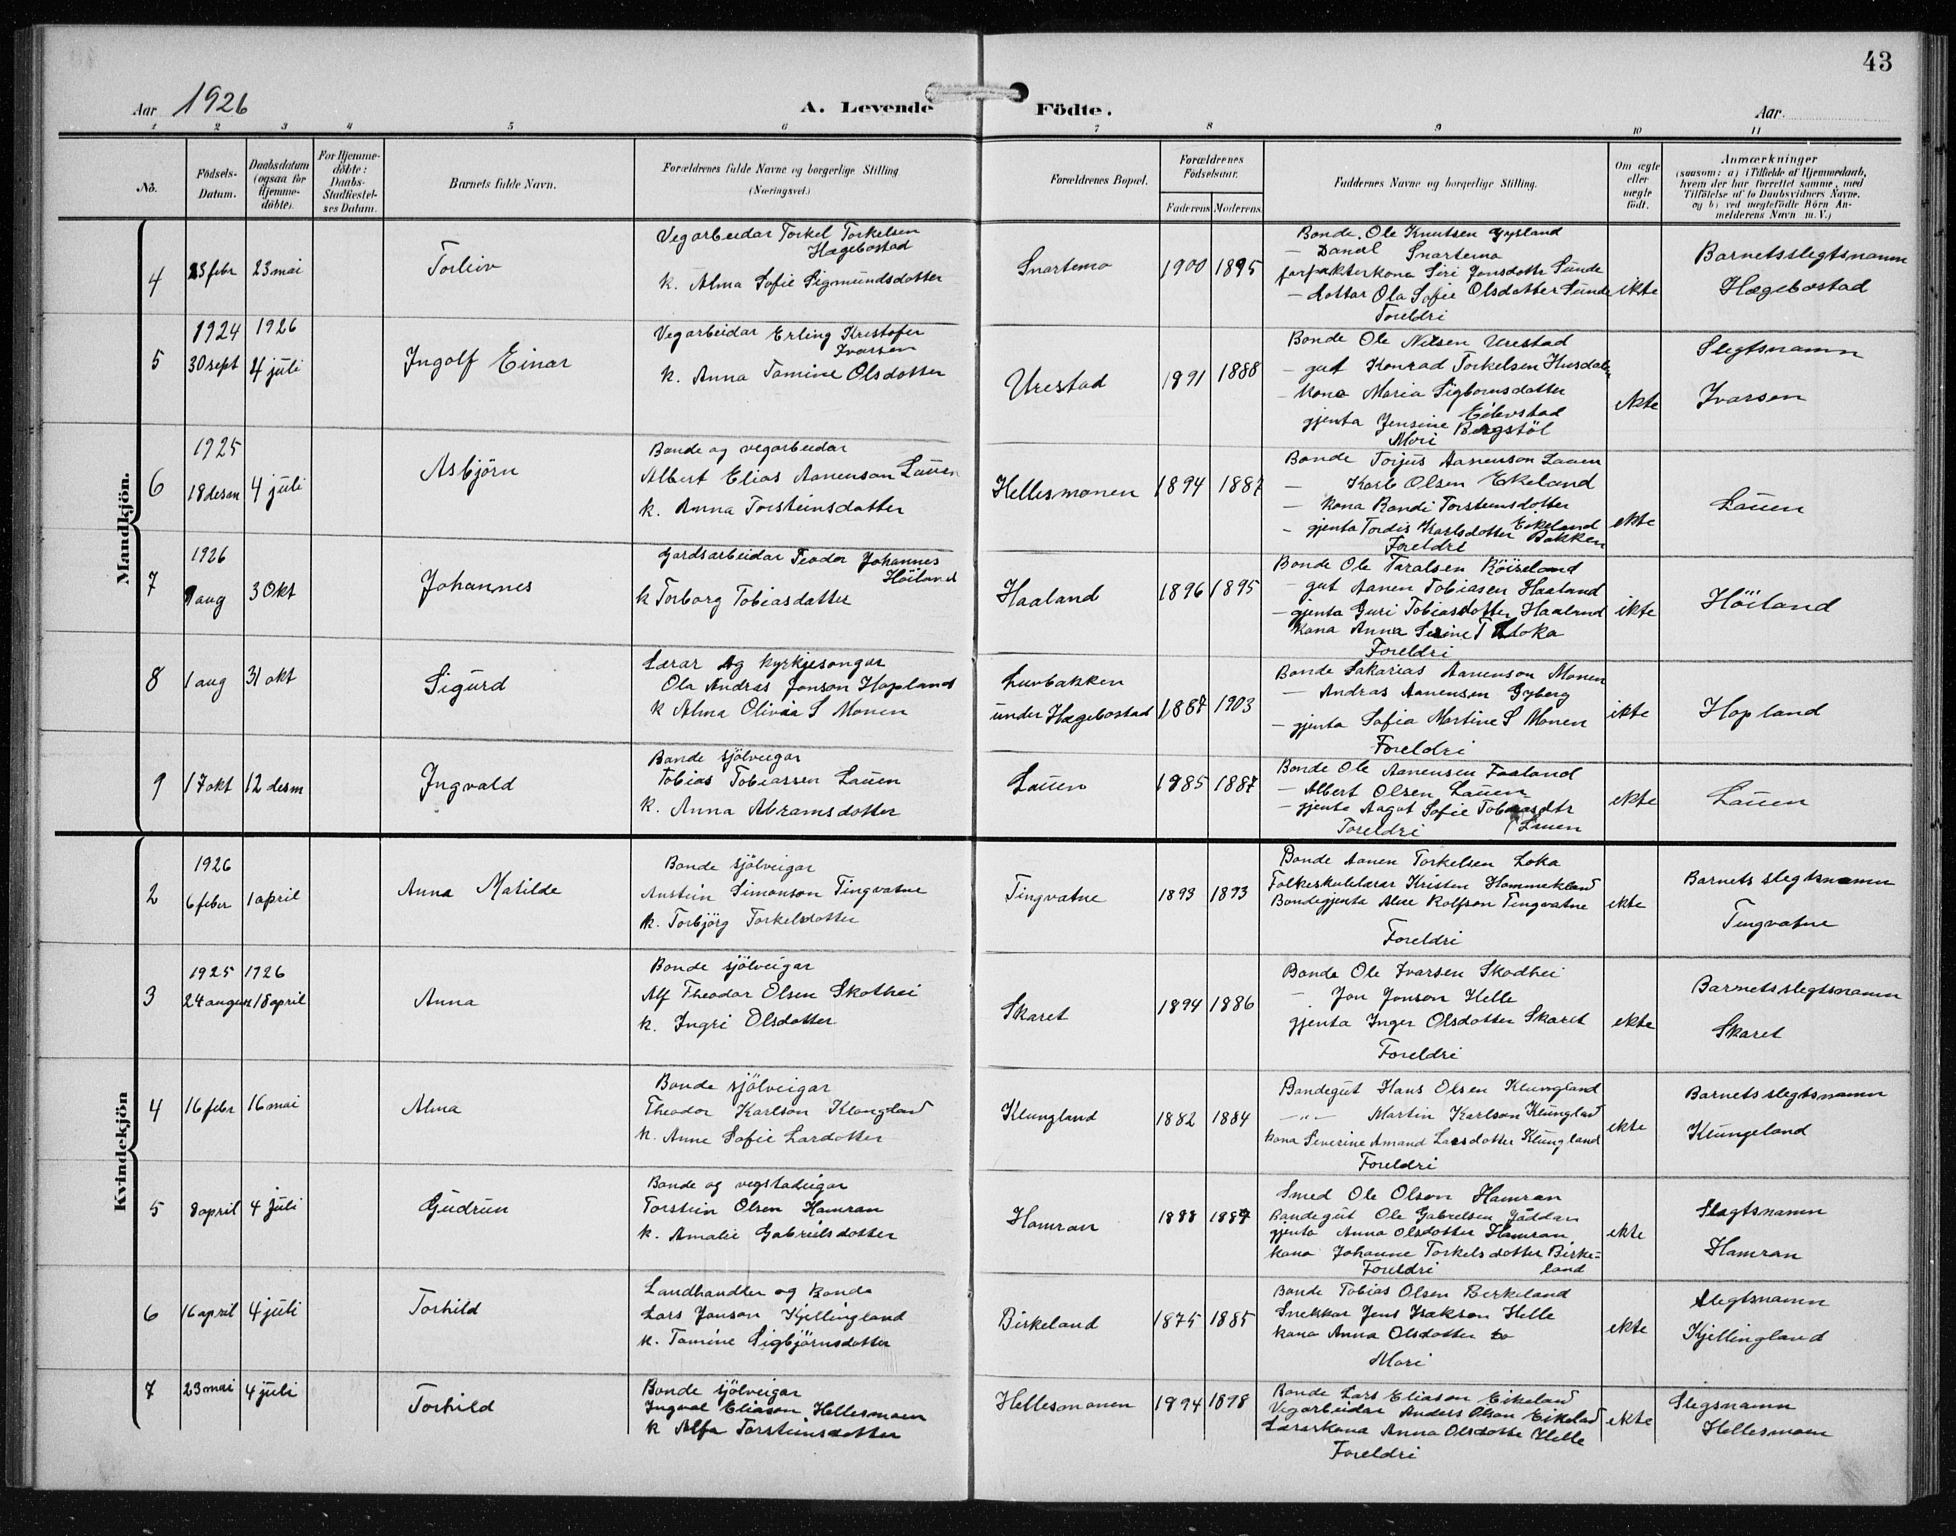 43
Aar 1926
A. Levende Födte.
Aar
1 2 3 4 5 6 7 8 9 10 11
No.
Födsels-
Datum.
Daabsdatum
(ogsaa for
Hjemme-
döbte).
For Hjemme-
döbte:
Daabs-
Stadfæstel-
ses Datum.
Barnets fulde Navn.
Forældrenes fulde Navne og borgerlige Stilling
(Næringsvei.)
Forældrenes Bopæl.
Forældrenes
Födselsaar.
Faderens. Moderens.
Faddernes Navne og borgerlige Stilling.
Om ægte
eller
uægte
födt.
Anmærkninger
(saasom: a) i Tilfælde af Hjemmedaab,
hvem der har forrettet samme, med
Tilföielse af to Daabsvidners Navne,
og b) ved uægtefödte Börn An-
melderens Navn m. V.)
Mandkjön.
4
23 febr
23 mai
Torleiv
Vegarbeidar Torkel Torkelsen
Hægebostad
k. Alma Sofie Sigmundsdotter
Snartemo
1900
1895
Bonde Ole Knutsen Gysland
— Danel Snartemo
forpakterkona Siri Jonsdotter Sunde
— dottar Ola Sofie Olsdotter Sunde
Foreldri
ikte
Barnetsslegtsnamn
Hægebostad
5
1924
30 sept
1926
4 juli
Ingolf Einar
Vegarbeidar Erling Kristofer
Ivarsen
k. Anna Tomine Olsdotter
Urestad
1891
1888
Bonde Ole Nilsen Urestad
— gut Konrad Torkelsen Husdalen
— kona Maria Sigbornsdotter
Eilevstad
gjenta Jensine Bergstöl
Mori
ekte
Slegtsnamn
Ivarsen
6
1925
18 desm
4 juli
Asbjörn
Bonde og vegarbeidar
Albert Elias Aanenson Lauen
k. Anna Torsteinsdotter
Hellesmonen
1894
1887
Bonde Torjus Aanenson Lauen
— Karl Olsen Ekeland
— kona Bondi Torsteinsdotter
— gjenta Tordis Karlsdotter Eikeland Bakken
Foreldri
ekte
Lauen
7
1926
9 aug
3 Okt
Johannes
Gardsarbeidar Teodor Johannes
Höiland
k Torborg Tobiasdatter
Haaland
1896
1895
Bonde Ole Taralsen Röiseland
— gut Aanen Tobiasen Haaland
— gjenta Guri Tobiasdotter Haaland
kona Anna Serine T Loka
Foreldri
ikte
Höiland
8
1 aug
31 okt
Sigurd
Lærar og kyrkjesongar
Ola Andras Jonson Hopland
k Alma Olivia S Monen
Luvbakken
under Hægebostad
1887
1903
Bonde Sakarias Aanenson Monen
— Andras Aanensen Gyberg
— gjenta Sofia Martine S Monen
Foreldri
ikte
Hopland
9
17 okt
12 desm
Ingvald
Bonde sjölveigar
Tobias Tobiassen Lauen
k. Anna Abramsdotter
Lauen
1885
1887
Bonde Ole Aanensen Faaland
— Albert Olsen Lauen
— gjenta Aagot Sofie Tobiasdtr
Lauen
Foreldri
ekte
Lauen
Kvindekjön
2
1926
6 feber
1 april
Anna Matilde
Bonde sjölveigar
Austein Simonson Tingvatne
k. Torbjörg Torkelsdotter
Tingvatne
1893
1893
Bonde Aanen Torkelsen Loka
Folkeskulelærar Kristen Hommekland
Bondegjenta Alice Rolfson Tingvatne
Foreldri
ekte
Barnets slegtsnamn
Tingvatne
3
1925
24 august
1926
18 april
Anna
Bonde sjölveigar
Alf Theodor Olsen Skothei
k. Ingri Olsdotter
Skaret
1894
1886
Bonde Ole Ivarsen Skodhei
— Jon Jonson Helle
gjenta Inger Olsdotter Skaret
Foreldri
ekte
Barnetsslegtsnamn
Skaret
4
16 febr
16 mai
Alma
Bonde sjölveigar
Theodor Karlson Klungland
k. Anne Sofie Larsdotter
Klungland
1882
1884
Bondegut Hans Olsen Klungland
—"— Martin Karlson Klungland
kona Severine Amand Larsdotter Klungland
Foreldri
ekte
Barnetsslegtsnamn
Klungeland
5
8 april
4 juli
Gudrun
Bonde og vegstadeigar
Torstein Olsen Hamran
k. Amalie Gabrielsdotter
Hamran
1888
1887
Smed Ole Olson Hamran
Bandegut Ole Gabrelsen Gåddan
gjenta Anna Olsdotter Hamran
kona Johanne Torkelsdotter Birke=
land
Foreldri
ekte
Slegtsnamn
Hamran
6
16 april
4 juli
Torhild
Landhandler og bonde
Lars Jonson Kjellingland
k. Tomine Sigbjörnsdotter
Birkeland
1875
1885
Bonde Tobias Olsen Berkeland
Snekkar Jens Isakson Helle
kona Anna Olsdotter do
Mori
ekte
Slegtsnamn
Kjellingland
7
23 mai
4 juli
Torhild
Bonde sjölveigar
Ingval Eliason Hellesmoen
k Alfa Torsteinsdotter
Hellesmonen
1894
1898
Bonde Lars Eliason Eikeland
Vegarbeidar Anders Olson Eikelad
Lærarkona Anna Olsdotte Helle
Foreldri
ekte
Slegsnamn
Hellesmoen